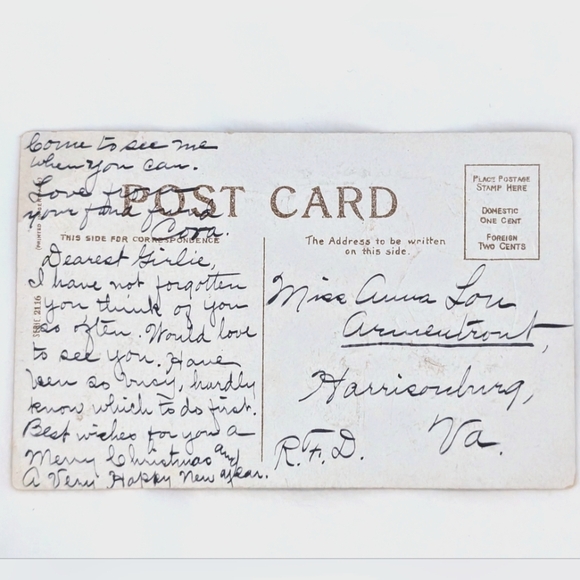 Come to see me
when you can.
Love from
your fond friend
Cora.
POST CARD
THIS SIDE FOR CORRESPONDENCE
The Address to be written
on this side.
PLACE POSTAGE
STAMP HERE
DOMESTIC
ONE CENT
FOREIGN
TWO CENTS
SERIE 2116
Dearest Girlie,
I have not forgotten
you think of you
so often. Would love
to see you. Have
been so busy, hardly
know which to do first.
Best wishes for you a
Merry Christmas and
A Very Happy New Year.
Miss Anna Lou
Armentrout,
Harrisonburg,
Va.
R.F.D.